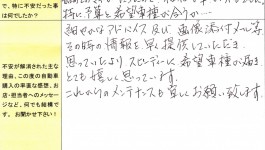 で、特に不安だった事
は何でしたか？
特に予算と希望車種が合うか…
不安が解消された主な
理由、この度の自動車
購入の率直な感想、お
店・担当者へのメッセー
ジなど、何でも結構で
す。お聞かせ下さい！
細やかなアドバイス及び画像添付メール等
その時の情報を早く提供していただき
思っていたよりスピーディーに希望車種が届き
とても嬉しく思っています。
これからのメンテナンスも宜しくお願い致します。